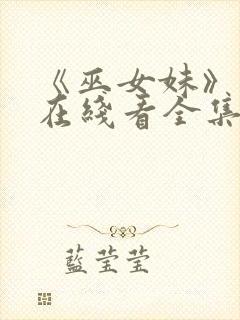 《巫女妹》
在綫看全集
藍莹莹